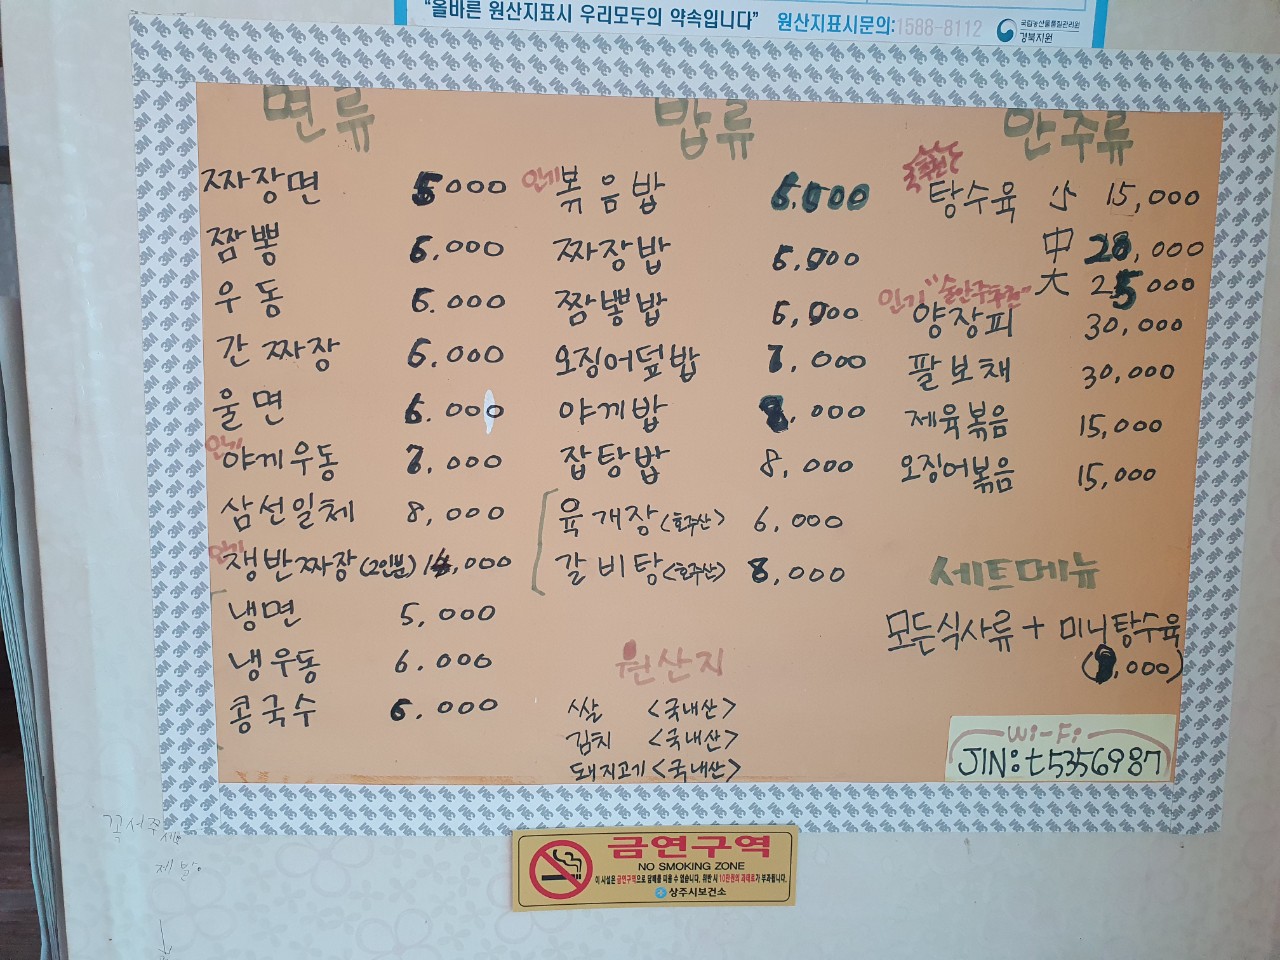 "올바른 원산지표시 우리모두의 약속입니다" 원산지표시문의:1588-8112
국립농산물품질관리원
경북지원
면류
짜장면 5000
짬뽕 6.000
우동 6.000
간짜장 6.000
울면 6.000
인기 야끼우동 7.000
삼선일체 8,000
인기 쟁반짜장(2인분) 14,000
냉면 5,000
냉우동 6.000
콩국수 6.000
밥류
인기 볶음밥 6.000
짜장밥 6.000
짬뽕밥 6,000
오징어덮밥 7.000
야끼밥 8.000
잡탕밥 8,000
육개장<호주산> 6,000
갈비탕<호주산> 8,000
원산지
쌀 <국내산>
김치 <국내산>
돼지고기<국내산>
안주류
탕수육 小 15,000
中 20,000
大 25000
인기 "술안주추천"
양장피 30,000
팔보채 30,000
제육볶음 15,000
오징어볶음 15,000
세트메뉴
모든식사류 + 미니탕수육
,000)
Wi-Fi
JIN:t5356987
꼭서주세요
제발
금연구역
NO SMOKING ZONE
이 시설은 금연구역으로 담배를 피울 수 없습니다. 위반 시 10만원의 과태료가 부과됩니다.
상주시보건소